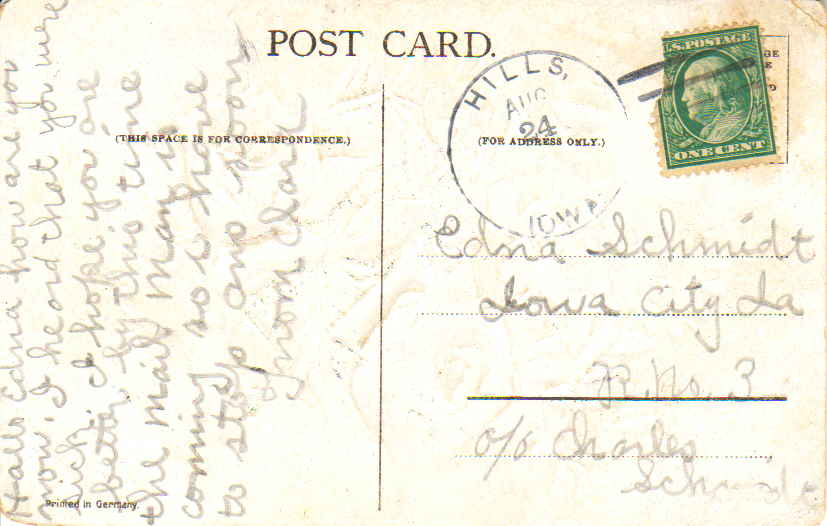 POST CARD.
(THIS SPACE IS FOR CORRESPONDENCE.)
Hallo Edna how are you
now. I heard that you were
sick, I hope you are
better by this time
the mail man is
coming so i have
to stop ans soon
from Clara
Printed in Germany.
HILLS,
AUG
24
IOWA
U.S. POSTAGE
ONE CENT
(FOR ADDRESS ONLY.)
Edna Schmidt
Iowa City Ia
R. No. 3
c/o Charles
Schmidt